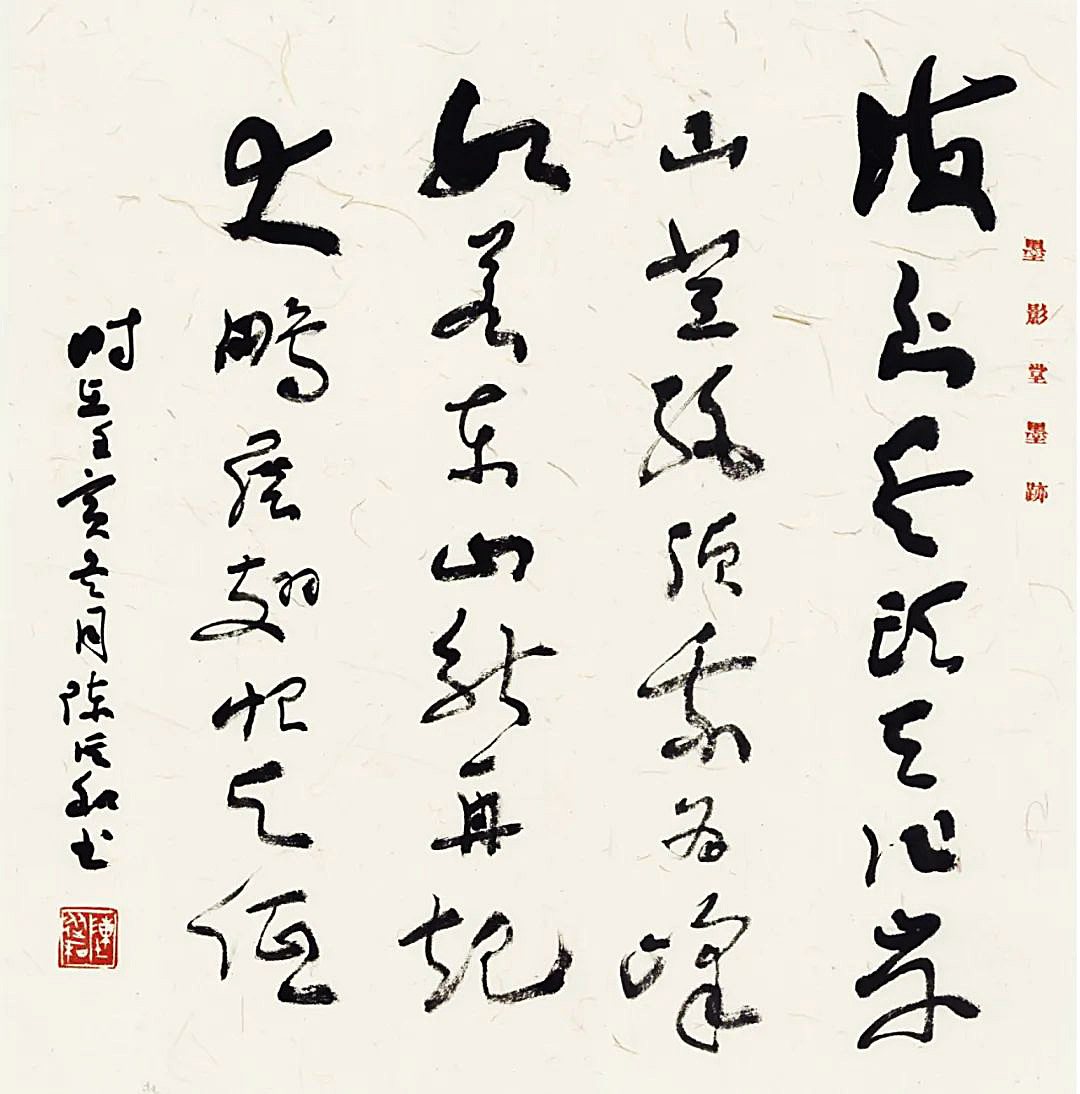 墨影堂墨跡
海到尽頭天作岸
山登绝顶我为峰
如若东山能再起
大鹏展翅恨天低
时在壬寅冬月陈和书